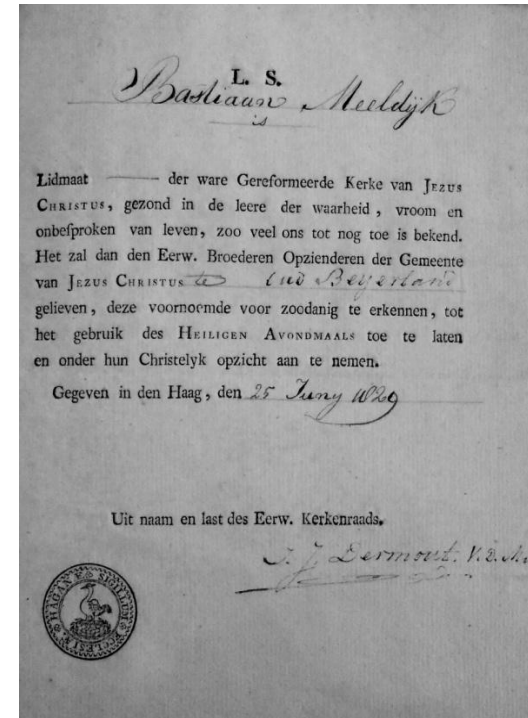 L. S.
Bastiaan Meeldijk
is
Lidmaat der ware Gereformeerde Kerke van JEZUS
CHRISTUS, gezond in de leere der waarheid, vroom en
onbeſproken van leven, zoo veel ons tot nog toe is bekend.
Het zal dan den Eerw. Broederen Opzienderen der Gemeente
van JEZUS CHRISTUS te Oud Beyerland
gelieven, deze voornoemde voor zoodanig te erkennen, tot
het gebruik des HEILIGEN AVONDMAALS toe te laten
en onder hun Christelyk opzicht aan te nemen.
Gegeven in den Haag, den 25 Juny 1829
Uit naam en last des Eerw. Kerkenraads.
J. J. Dermout. V. D. M.
SIGILLUM ECCLESIÆ HAGANÆ